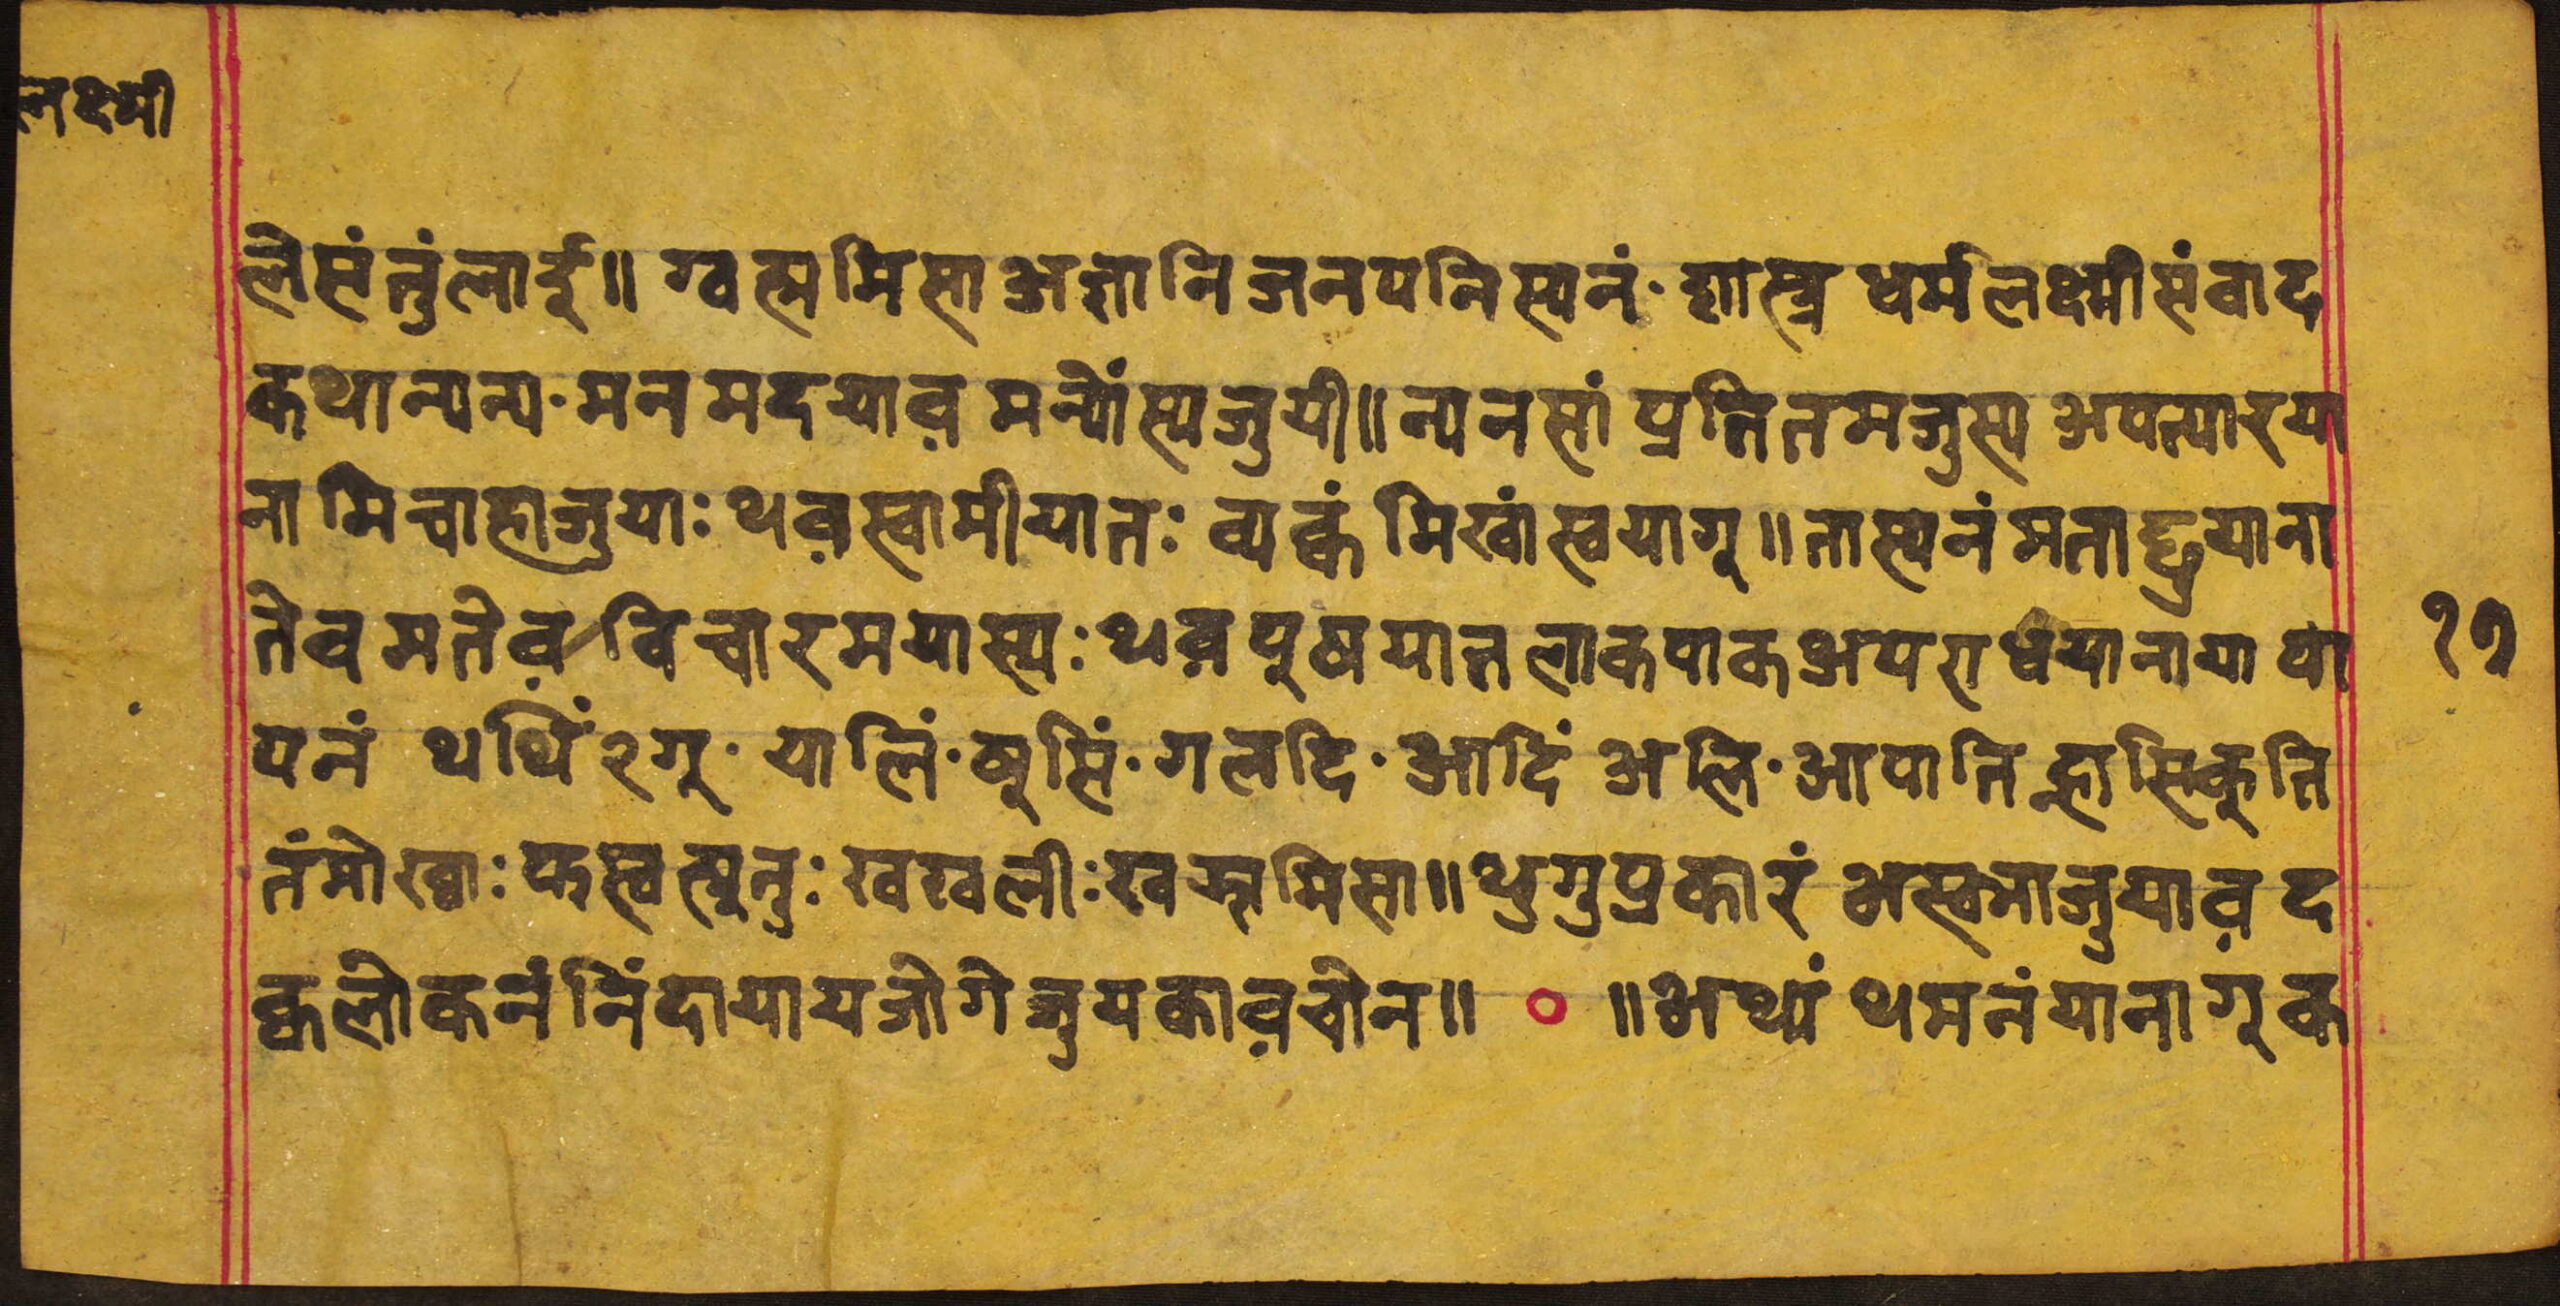 लक्ष्मी
लेसं तुं लार्इ॥ ग्वह्म मिसा अज्ञानि जनपनिस्यनं · शास्त्र धर्मलक्ष्मी संवाद
कथा न्यन्य · मन मदयाव़ मन्योंस्य जुयी॥ न्यनसां प्रतितमजुस्य अपत्यारया
ना मिचाहाजुयाः थव़स्वामीयातः व्यक्कं मिखां स्वयागू॥ तास्यनं मताछुयाना
तेव मतेव़ विचारमयास्यः थव़पूषयात्त लाकपाक अपराधयानाया पा
पनं थथिं२गू · यालिं · कूसिं · गलदि · आदिं अलि · आपाति ह्नासिकूति
तंमोख्वाः फस्वत्यूनुः खखलीः खझमिसा॥ थुगुप्रकारं अस्वमाजुयाव़ द
क्वलोकनं निंदायायजोगे जुयकाव़चोन॥ ० ॥अथ्यं थमनंयानागू क
१७